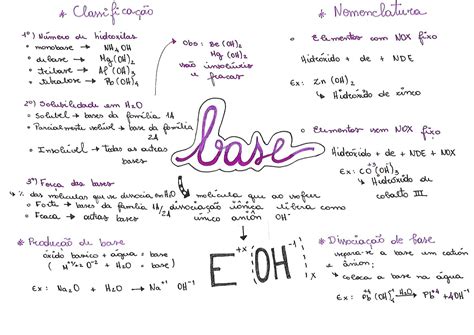 * Classificação
1º) Número de hidroxilas
• monobase → NH4OH
• dibase → Mg(OH)2
• tribase → Al(OH)3
• tetrabase → Pb(OH)4
Obs: Be(OH)2
Mg(OH)2
são insolúveis
e fracas
2º) Solubilidade em H2O
• Solúvel → bases da família 1A
• Parcialmente solúvel → base da família 2A
• Insolúvel → todas as outras bases
3º) Força das bases
↳ % das moléculas que se dissocia em H2O
molécula que ao sofrer
dissociação iônica libera como
único ânion OH-
• Forte → bases da família 1A/2A
• Fraca → outras bases
* Produção de base
óxido básico + água = base
(M+x2O-2 + H2O = base)
Ex: Na2O + H2O → Na+1 OH-1
base
E+x [OH-1]x
* Nomenclatura
• Elementos com NOX fixo
Hidróxido + de + NDE
Ex: Zn(OH)2
↳ Hidróxido de zinco
• Elementos sem NOX fixo
Hidróxido + de + NDE + NOX
Ex: CO(OH)3
↳ Hidróxido de
cobalto III
* Dissociação de base
separa-se a base um cátion
e ânion;
↳ coloca a base na água
Ex: Pb(OH)4 H2O→ Pb+4 + 4OH-1